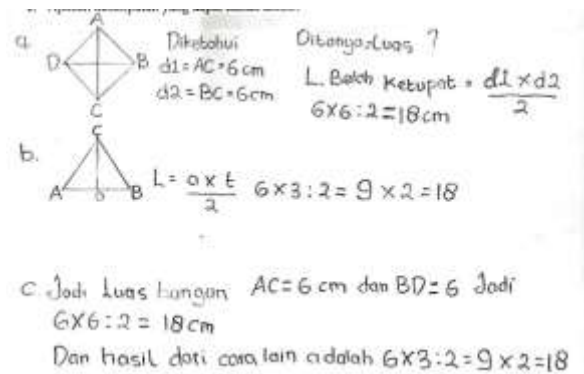 a.
A
D B
C
Diketahui
d1 = AC = 6 cm
d2 = BC = 6cm
Ditanya = Luas ?
L. Belah Ketupat = d1 x d2 / 2
6x6 : 2 = 18 cm
b.
C
A D B
L = a x t / 2 6 x 3 : 2 = 9 x 2 = 18
C. Jadi Luas bangun AC = 6 cm dan BD = 6 Jadi
6x6 : 2 = 18 cm
Dan hasil dari cara lain adalah 6x3 : 2 = 9 x 2 = 18